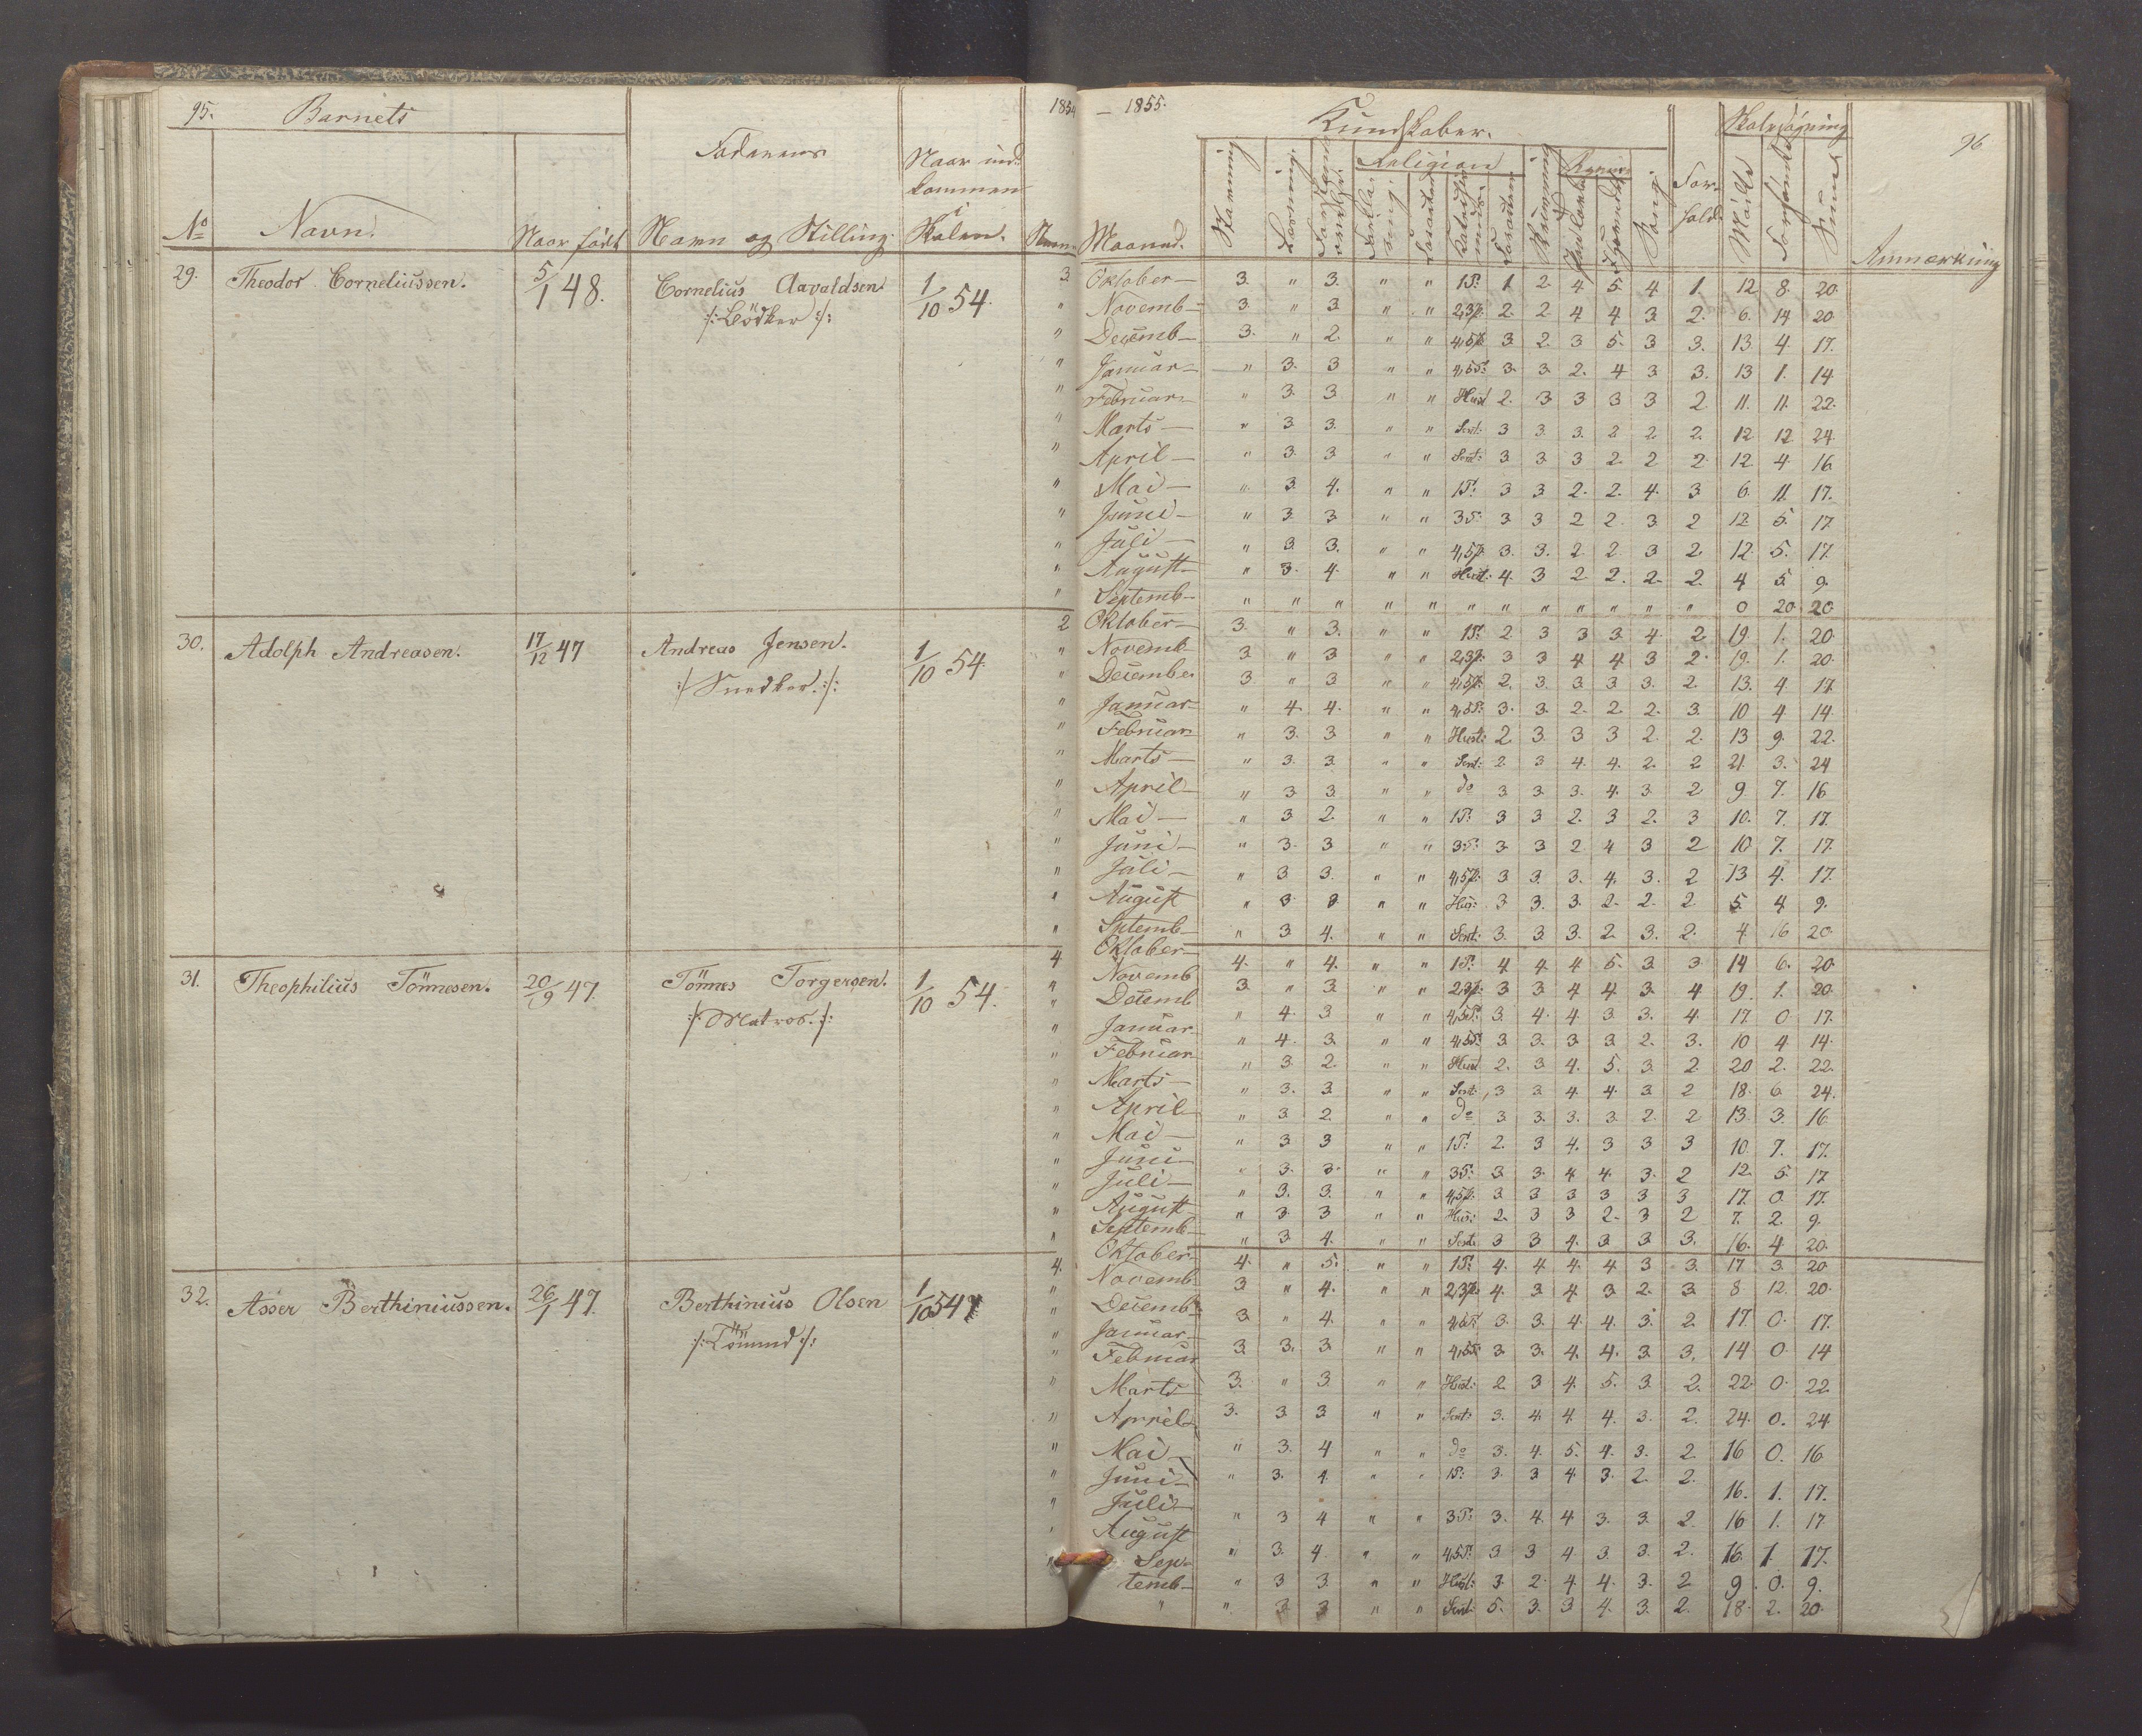 95. Barnets 1854 — 1855. Kundskaber. Skolesøgning 96
Faderens Naar ind- Religion
kommen i
No Navn. Naar født Navn og Stilling. Skolen. Maaned. Stavning Læsning. Sang Forhold. Mødte Forsømte Sum Anmærkning
29. Theodor Corneliussen. 5/1 48. Cornelius Aavaldsen 1/10 54. 3 Oktober— 3. " 3. " " 1P: 1 2 4 5 4 1. 12 8. 20.
/:Bödker:/ " Novemb— 3. " 3 " " 2,3p. 2. 2 4 4 3 2. 6. 14 20.
" Decemb— 3. " 2. " " 4,5p. 3 2. 3 5. 3 3. 13 4. 17.
" Januar— " 3. 3 " " 4,5P. 3. 3 2. 4 3 3. 13 1. 14
" Februar— " 3. 3. " " Hust 2. 3 3 3 3 2 11. 11. 22.
" Marts— " 3 3. " " Sent: 3 3 3. 2 2 2. 12 12 24.
" April— " 3. 3 " " Sent: 3 3 3 2 2 2. 12. 4. 16
" Mai— " 3. 4. " " 1P: 3 3 2. 2. 4. 3 6. 11. 17.
" Juni— " 3. 3 " " 3P. 3 3 2 2 3 2 12. 5. 17.
" Juli— " 3 3. " " 4,5p. 3. 3. 2 2 3 2. 12. 5. 17.
" August— " 3. 4. " " Hust: 4. 3 2 2. 2. 2. 4 5 9.
" Septemb— " " " " " " " " " " " " 0 20. 20.
30. Adolph Andreasen. 17/12 47 Andreas Jensen. 1/10 54. 2 Oktober— 3. " 3. " " 1P. 2 3 3 3. 4. 2. 19. 1. 20.
/:Snedker.:/ " Novemb— 3. " 3 " " 2,3p. 3 3 4 4 3 2. 19. 1. 20.
" December 3. " 3 " " 4,5p. 2. 3. 3 3 3. 2. 13. 4. 17.
" Januar— " 4. 4. " " 4,5P. 3. 3. 2. 2. 2. 3. 10 4 14.
" Februar " 3. 3 " " Hust: 2 3. 3 3 2 2. 13 9. 22.
" Marts— " 3. 3. " " Sent: 2 3 4. 4. 2. 2 21. 3. 24
" April— " 3 3 " " do 3 3. 3. 4. 3. 2 9 7. 16.
" Mai— " 3 2. " " 1P. 3 3 2. 3 2. 3 10. 7. 17.
" Juni— " 3. 3 " " 3P. 3 3 2 4 3 2 10 7. 17.
" Juli— " 3 3. " " 4,5p. 3 3. 3. 4. 3. 2 13 4. 17.
" August " 3 3 " " Hus: 3 3. 3. 2. 2. 2. 5. 4 9.
" Sptemb— " 3 4. " " Sent: 3. 3. 3. 2 3. 2. 4 16 20.
31. Theophilius Tönnesen. 20/9 47. Tönnes Torgersen. 1/10 54. 4 Oktober— 4. " 4. " " 1P. 4 4. 4 5. 3. 3 14 6. 20.
/:Matros.:/ " Novemb 3. " 3. " " 2,3p. 3 3 4 4. 3. 4 19. 1. 20.
" Decemb " 4. 3 " " 4,5P. 3. 4. 4 3 3. 4. 17. 0 17.
" Januar— " 4. 3. " " 4,5P. 3 3. 3. 3 2. 3. 10 4 14.
" Februar " 3 2. " " Hust 2. 3 4. 5. 3. 2. 20 2. 22.
" Marts— " 3. 3. " " Sent: 3 3 4. 4. 3 2 18. 6. 24.
" April— " 3 2. " " do 3 3. 3. 3 2. 2 13. 3. 16.
" Mai— " 3 3 " " 1P. 2. 3 4. 3 3 3 10. 7. 17.
" Juni— " 3. 3. " " 3P. 3 3. 4 4. 3. 2 12. 5. 17
" Juli— " 3. 3. " " 4,5p. 3 3 3 3 3 3 17. 0 17.
" August— " 3 3 " " Hus: 2. 3 3 2. 3 2 7. 2. 9.
" Septemb— " 3 4. " " Sent: 3 3 4. 3 3 3. 16. 4 20.
32. Asser Berthiniussen. 26/1 47. Berthinius Olsen 1/10 54 4. Oktober— 4. " 5. " " 1P. 4. 4. 4. 4 3 3. 17 3 20
" Novemb. 3 " 4. " " 2,3p. 4. 3 4. 3 2. 3 8 12. 20.
" Decemb— 3. " 4. " " 3. 3. 4. 4. 3. 2. 17. 0. 17.
" Januar— 3. 3. 3. " " 4,5P. 3. 3. 4. 4. 3. 3. 14 0. 14
" Februar 3. " 3. " " Hust: 2. 3 4. 5. 3. 2. 22. 0. 22.
" Marts— 3. 3. 3 " " Sent: 3. 4. 4 4. 3. 2. 24. 0. 24
" Aprrel— " 3. 4 " " do 3. 4. 5. 4. 3. 2 16 0. 16.
" Mai— " 3. 4. " " 1P. 3. 3 4. 3. 2. 2. 16. 1. 17.
" Juni— " 3 4 " " 3P. 3. 4. 4 3. 3. 2. 16 1. 17
" Juli— " 3. 4. " " 4,5P. 3 3 4 3. 3. 2. 16. 1. 17.
" August " 3 3. " " Hust: 3. 2. 4. 4. 3. 2 9. 0. 9.
" Sep-
temb— " 3 3 " " Sent: 5. 3. 3 4. 3. 2. 18. 2. 20.